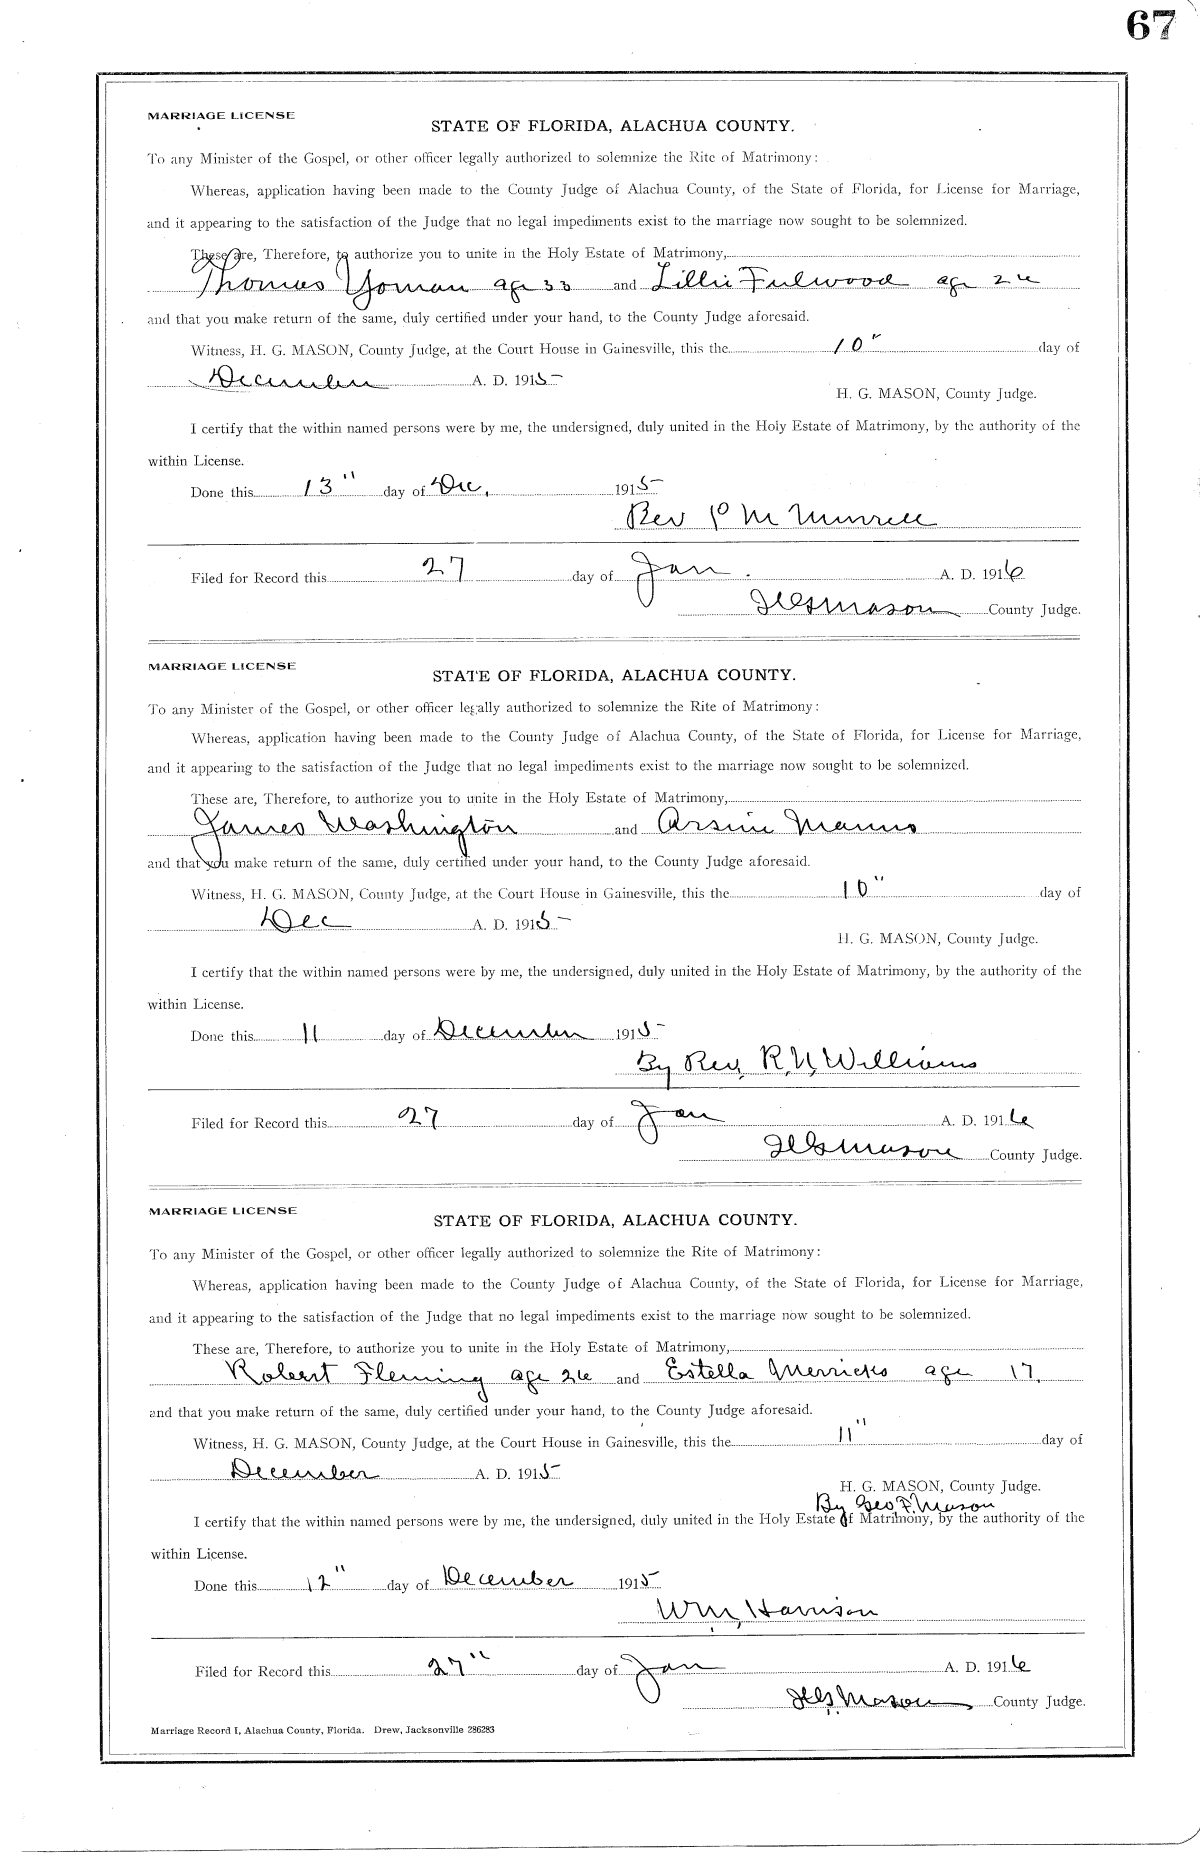 67
MARRIAGE LICENSE
STATE OF FLORIDA, ALACHUA COUNTY.
To any Minister of the Gospel, or other officer legally authorized to solemnize the Rite of Matrimony:
Whereas, application having been made to the County Judge of Alachua County, of the State of Florida, for License for Marriage,
and it appearing to the satisfaction of the Judge that no legal impediments exist to the marriage now sought to be solemnized.
These are, Therefore, to authorize you to unite in the Holy Estate of Matrimony,
Thomas Yoman age 33 and Lillie Fulwood age 26
and that you make return of the same, duly certified under your hand, to the County Judge aforesaid.
Witness, H. G. MASON, County Judge, at the Court House in Gainesville, this the 10" day of
December A. D. 1915
H. G. MASON, County Judge.
I certify that the within named persons were by me, the undersigned, duly united in the Holy Estate of Matrimony, by the authority of the
within License.
Done this 13" day of Dec, 1915
Rev P M
Filed for Record this 27 day of Jan. A. D. 1916
H G Mason County Judge.
MARRIAGE LICENSE
STATE OF FLORIDA, ALACHUA COUNTY.
To any Minister of the Gospel, or other officer legally authorized to solemnize the Rite of Matrimony:
Whereas, application having been made to the County Judge of Alachua County, of the State of Florida, for License for Marriage,
and it appearing to the satisfaction of the Judge that no legal impediments exist to the marriage now sought to be solemnized.
These are, Therefore, to authorize you to unite in the Holy Estate of Matrimony,
James Washington and Arsine Manns
and that you make return of the same, duly certified under your hand, to the County Judge aforesaid.
Witness, H. G. MASON, County Judge, at the Court House in Gainesville, this the 10" day of
Dec A. D. 1915
H. G. MASON, County Judge.
I certify that the within named persons were by me, the undersigned, duly united in the Holy Estate of Matrimony, by the authority of the
within License.
Done this 11 day of December 1915
By Rev, R. N, Williams
Filed for Record this 27 day of Jan A. D. 1916
H G Mason County Judge.
MARRIAGE LICENSE
STATE OF FLORIDA, ALACHUA COUNTY.
To any Minister of the Gospel, or other officer legally authorized to solemnize the Rite of Matrimony:
Whereas, application having been made to the County Judge of Alachua County, of the State of Florida, for License for Marriage,
and it appearing to the satisfaction of the Judge that no legal impediments exist to the marriage now sought to be solemnized.
These are, Therefore, to authorize you to unite in the Holy Estate of Matrimony,
Robert Fleming age 26 and Estella Merricks age 17.
and that you make return of the same, duly certified under your hand, to the County Judge aforesaid.
Witness, H. G. MASON, County Judge, at the Court House in Gainesville, this the 11" day of
December A. D. 1915
H. G. MASON, County Judge.
By Geo F. Mason
I certify that the within named persons were by me, the undersigned, duly united in the Holy Estate of Matrimony, by the authority of the
within License.
Done this 12" day of December 1915
Wm, Harrison
Filed for Record this 27" day of Jan A. D. 1916
H G. Mason County Judge.
Marriage Record I, Alachua County, Florida. Drew, Jacksonville 286283